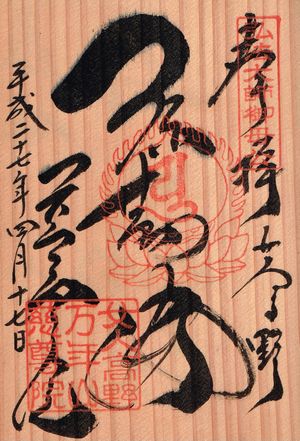 弘法大師
奉拝 女人高野
弥勒
慈尊院
平成二十七年四月十七日
女人高野
万年山
慈尊院